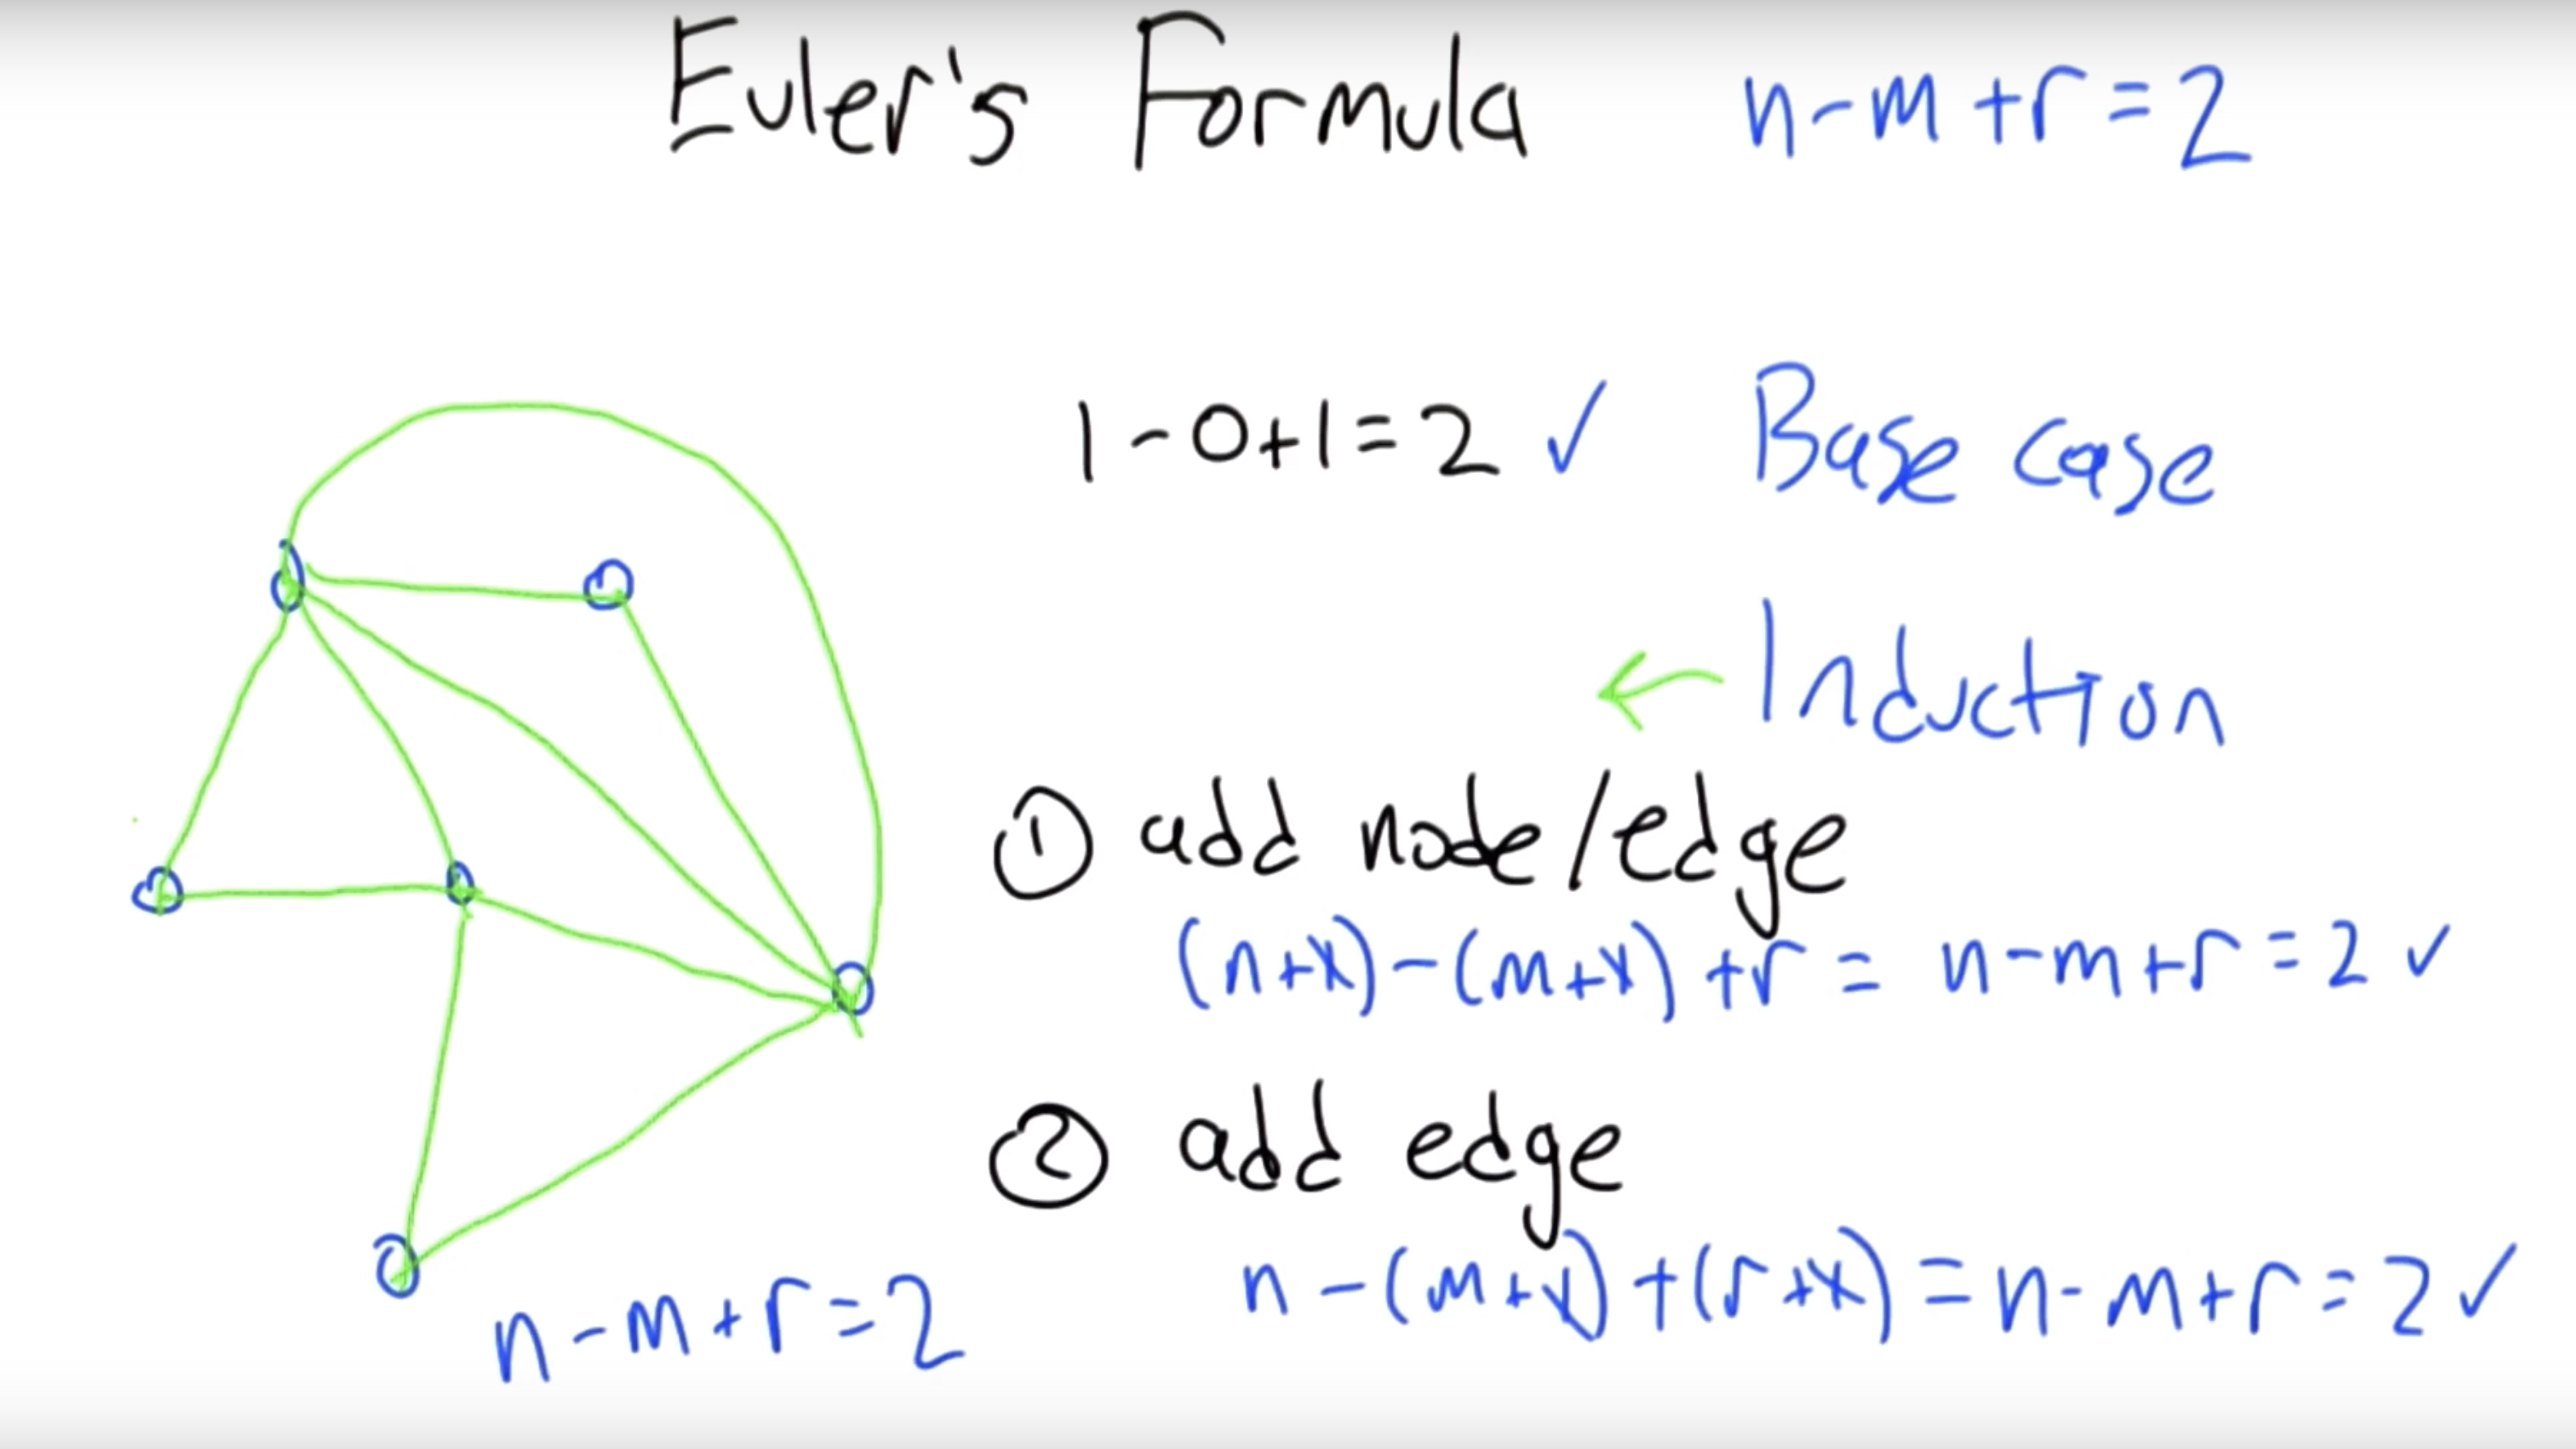 Euler's Formula n-m+r=2
1-0+1=2 ✓ Base case
← Induction
① add node/edge
(n+1)-(m+1)+r = n-m+r=2 ✓
② add edge
n-(m+1)+(r+1)=n-m+r=2 ✓
n-m+r=2